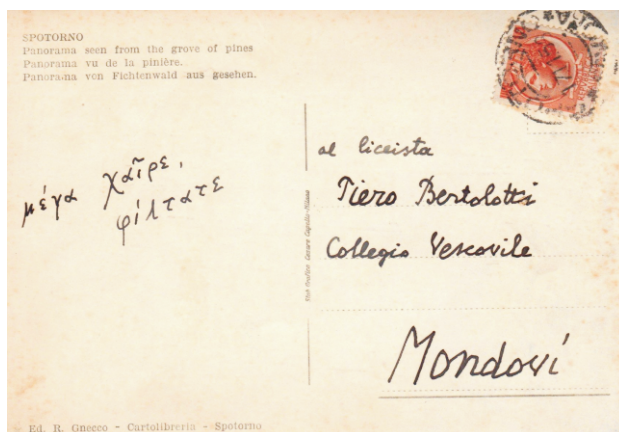 SPOTORNO
Panorama seen from the grove of pines
Panorama vu de la pinière.
Panorama von Fichtenwald aus gesehen.
μέγα χαῖρε,
φίλτατε
al liceista
Piero Bertolotti
Collegio Vescovile
Mondoví
Ed. R. Gnecco - Cartolibreria - Spotorno